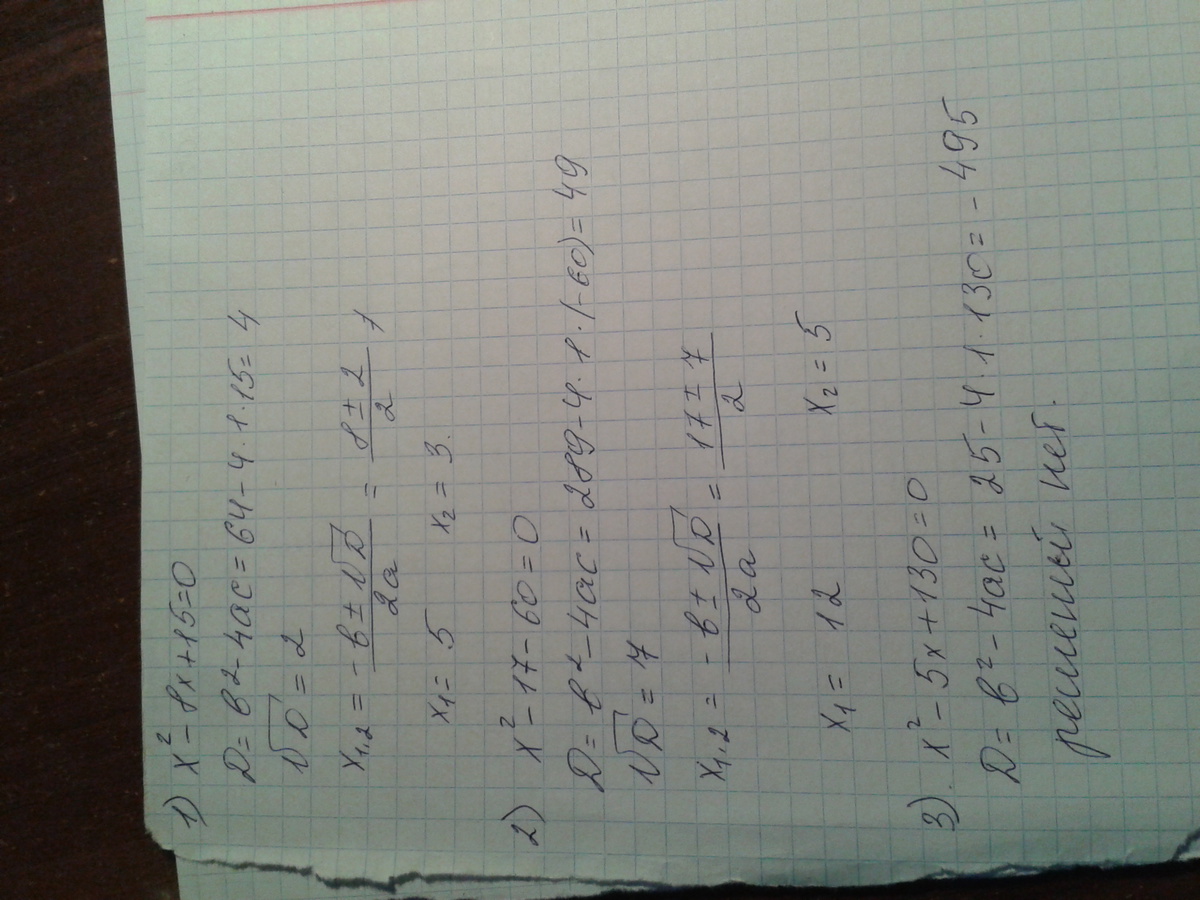 1) x² - 8x + 15 = 0
D = в² - 4ac = 64 - 4 · 1 · 15 = 4
√D = 2
x₁,₂ = -в ± √D / 2a = 8 ± 2 / 2 ,
x₁ = 5 x₂ = 3.
2) x² - 17 - 60 = 0
D = в² - 4ac = 289 - 4 · 1 · (-60) = 49
√D = 7
x₁,₂ = -в ± √D / 2a = 17 ± 7 / 2
x₁ = 12 x₂ = 5
3). x² - 5x + 130 = 0
D = в² - 4ac = 25 - 4 · 1 · 130 = - 495
решений нет.